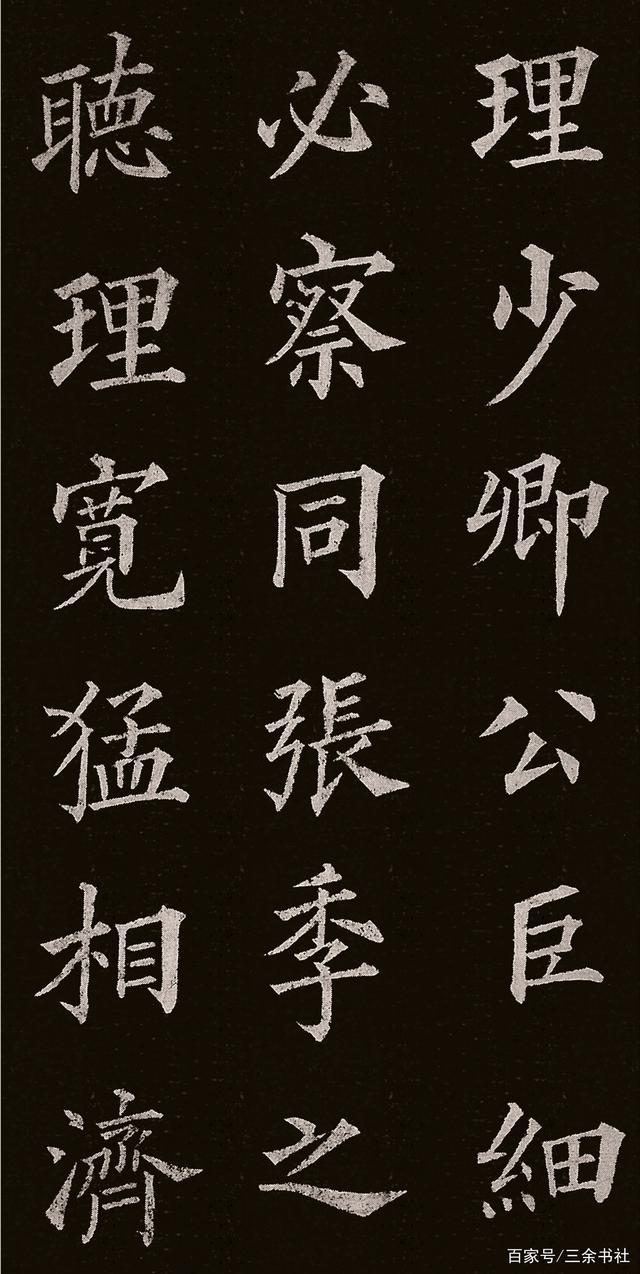 理少卿公臣細
必察同張季之
聽理寬猛相濟
百家号/三余书社